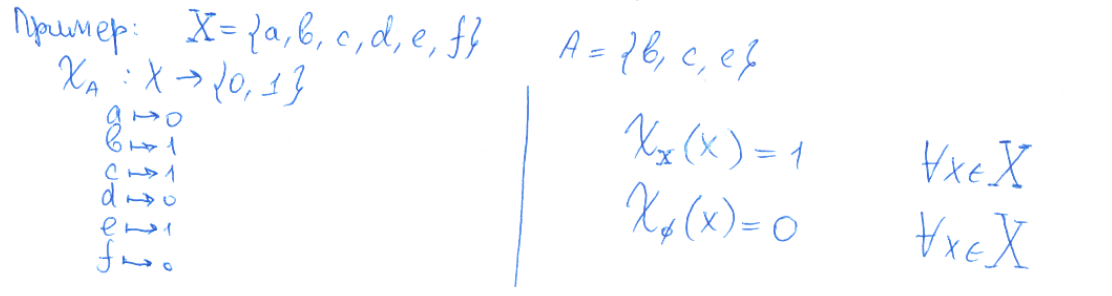 Пример: X = {a, b, c, d, e, f} A = {b, c, e}
χ_A : X → {0, 1}
a ↦ 0
b ↦ 1
c ↦ 1
d ↦ 0
e ↦ 1
f ↦ 0
χ_X(x) = 1 ∀x ∈ X
χ_∅(x) = 0 ∀x ∈ X